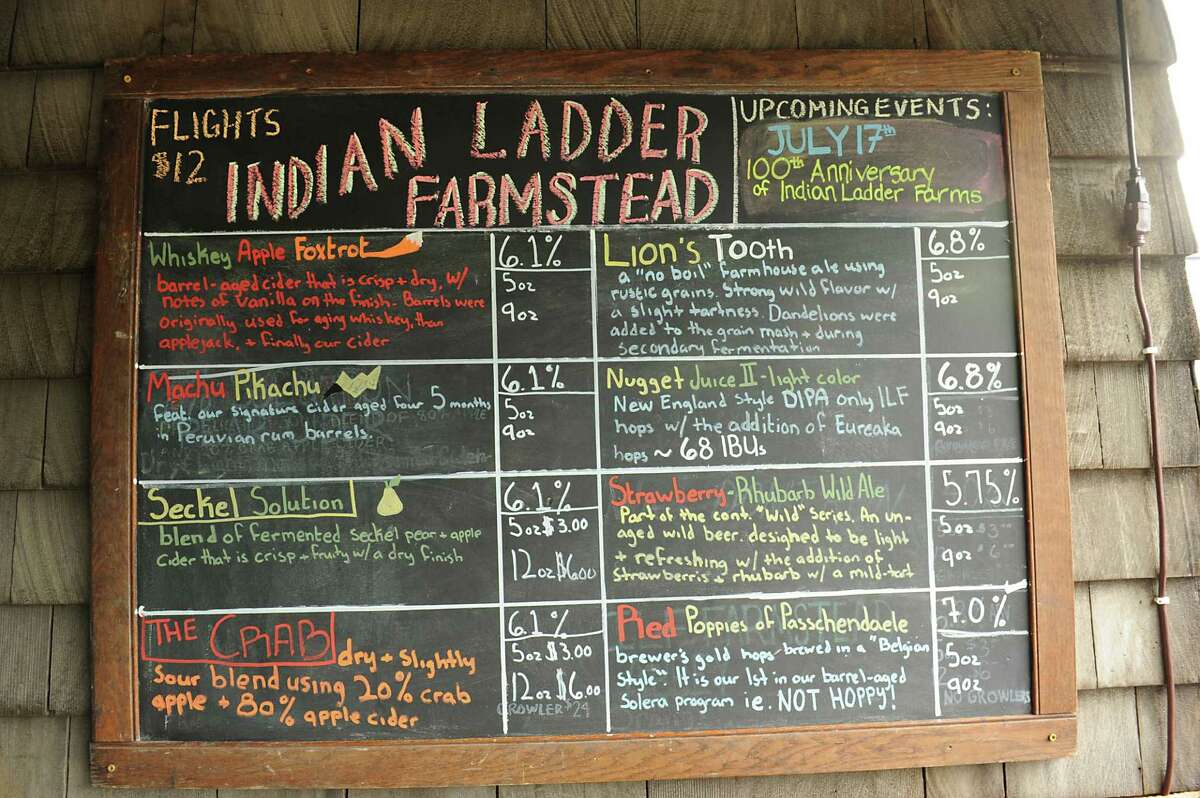 FLIGHTS
$12
INDIAN LADDER
FARMSTEAD
UPCOMING EVENTS:
JULY 17th
100th Anniversary
of Indian Ladder Farms
Whiskey Apple Foxtrot
barrel-aged cider that is crisp + dry, w/
notes of vanilla on the finish. Barrels were
originally used for aging whiskey, than
applejack, + finally our cider
6.1%
5oz
9oz
Machu Pikachu
Feat. our signature cider aged four 5 months
in Peruvian rum barrels.
6.1%
5oz
9oz
Seckel Solution
blend of fermented seckel pear + apple
cider that is crisp + fruity w/ a dry finish
6.1%
5oz $3.00
12oz $6.00
THE CRAB dry + slightly
sour blend using 20% crab
apple + 80% apple cider
6.1%
5oz $3.00
12oz $6.00
GROWLER $24
Lion's Tooth
a "no boil" farmhouse ale using
rustic grains. Strong wild flavor w/
a slight tartness. Dandelions were
added to the grain mash + during
secondary fermentation
6.8%
5oz
9oz
Nugget Juice II - light color
New England Style DIPA only ILF
hops w/ the addition of Eureaka
hops ~ 68 IBUs
6.8%
5oz
9oz
Strawberry-Rhubarb Wild Ale
Part of the cont. "Wild" series. An un-
aged wild beer. designed to be light
+ refreshing w/ the addition of
Strawberris + rhubarb w/ a mild-tart
5.75%
5oz
9oz
Red Poppies of Passchendaele
brewer's gold hops brewed in a "Belgian
Style". It is our 1st in our barrel-aged
Solera program ie. NOT HOPPY!
7.0%
5oz
9oz
NO GROWLERS